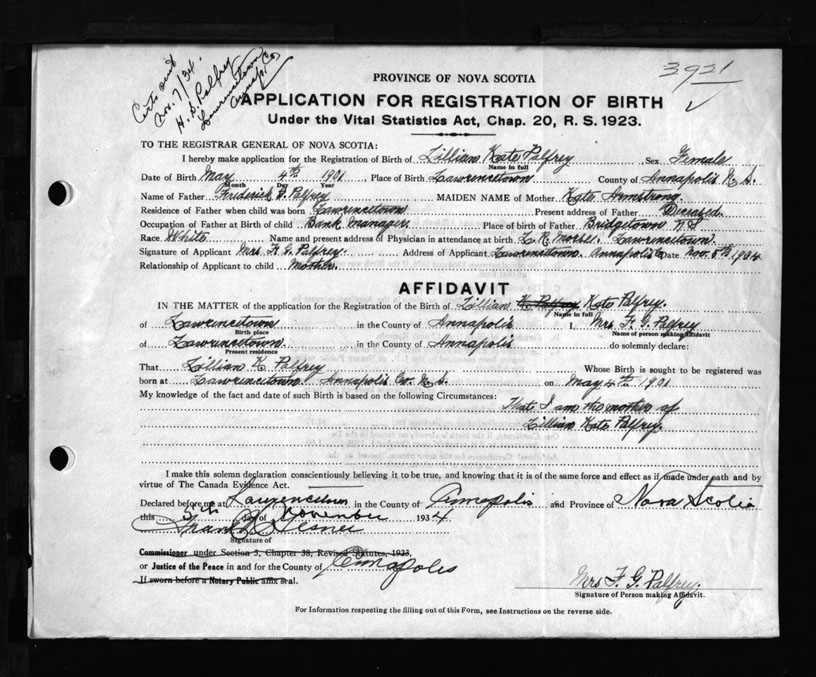 Certs sent
Nov. 7/34.
H. S. Palfrey
Lawrencetown
Annap. Co.
3921
PROVINCE OF NOVA SCOTIA
APPLICATION FOR REGISTRATION OF BIRTH
Under the Vital Statistics Act, Chap. 20, R. S. 1923.
TO THE REGISTRAR GENERAL OF NOVA SCOTIA:
I hereby make application for the Registration of Birth of Lillian Kate Palfrey Sex Female
Name in full
Date of Birth May 4th 1901 Place of Birth Lawrencetown County of Annapolis N.S.
Month Day Year
Name of Father Frederick G. Palfrey MAIDEN NAME of Mother Kate Armstrong
Residence of Father when child was born Lawrencetown Present address of Father Deceased
Occupation of Father at Birth of child Bank Manager Place of birth of Father Bridgetown N S
Race White Name and present address of Physician in attendance at birth L. R. Morse. Lawrencetown.
Signature of Applicant Mrs F. G. Palfrey. Address of Applicant Lawrencetown. Annapolis Co Date Nov. 5th 1934
Relationship of Applicant to child Mother.
AFFIDAVIT
IN THE MATTER of the application for the Registration of the Birth of Lillian K. Palfrey Kate Palfrey.
Name in full
of Lawrencetown in the County of Annapolis I, Mrs F. G. Palfrey
Birth place Name of person making Affidavit
of Lawrencetown. in the County of Annapolis do solemnly declare:
Present residence
That Lillian K. Palfrey Whose Birth is sought to be registered was
born at Lawrencetown. Annapolis Co. N.S. on May 4th 1901
My knowledge of the fact and date of such Birth is based on the following Circumstances:
That I am the mother of
Lillian Kate Palfrey.
I make this solemn declaration conscientiously believing it to be true, and knowing that it is of the same force and effect as if made under oath and by
virtue of The Canada Evidence Act.
Declared before me at Lawrencetown in the County of Annapolis and Province of Nova Scotia
this 5th day of November 1934
Frank
Signature of
Commissioner under Section 3, Chapter 38, Revised Statutes, 1923,
or Justice of the Peace in and for the County of Annapolis
If sworn before a Notary Public affix seal.
Mrs F. G. Palfrey.
Signature of Person making Affidavit.
For Information respecting the filling out of this Form, see Instructions on the reverse side.